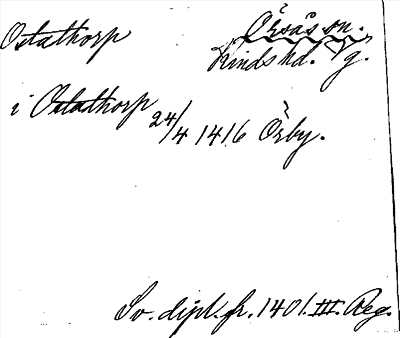 Ostathorp
Örsås sn.
Kinds hd. Vg.
i Ostathorp 24/4 1416 Örby.
Sv. dipl. fr. 1401. III. Reg.